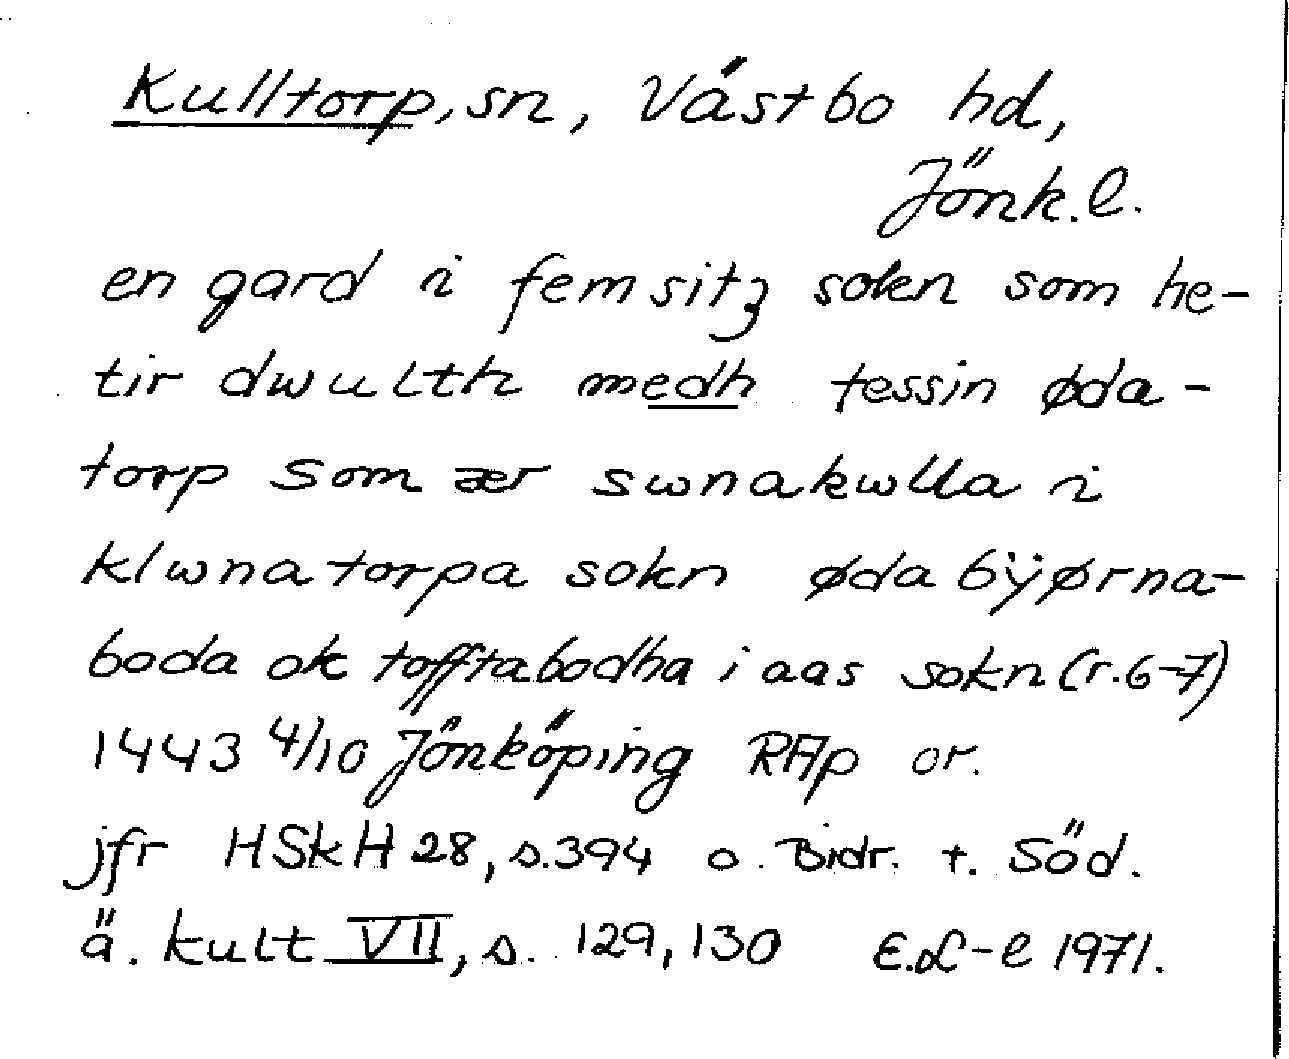 Kulltorp, sn, Västbo hd,
Jönk. l.
en gard i femsitz sokn som he-
tir dwulth medh tessin øda-
torp som ær swnakwlla i
klwnatorpa sokn øda bÿørna-
boda ok tofftabodha i aas sokn (r. 6-7)
1443 4/10 Jönköping RAp or.
jfr HSkH 28, s. 394 o. Bidr. t. Söd.
ä. kult VII, s. 129, 130 E.L-l 1971.